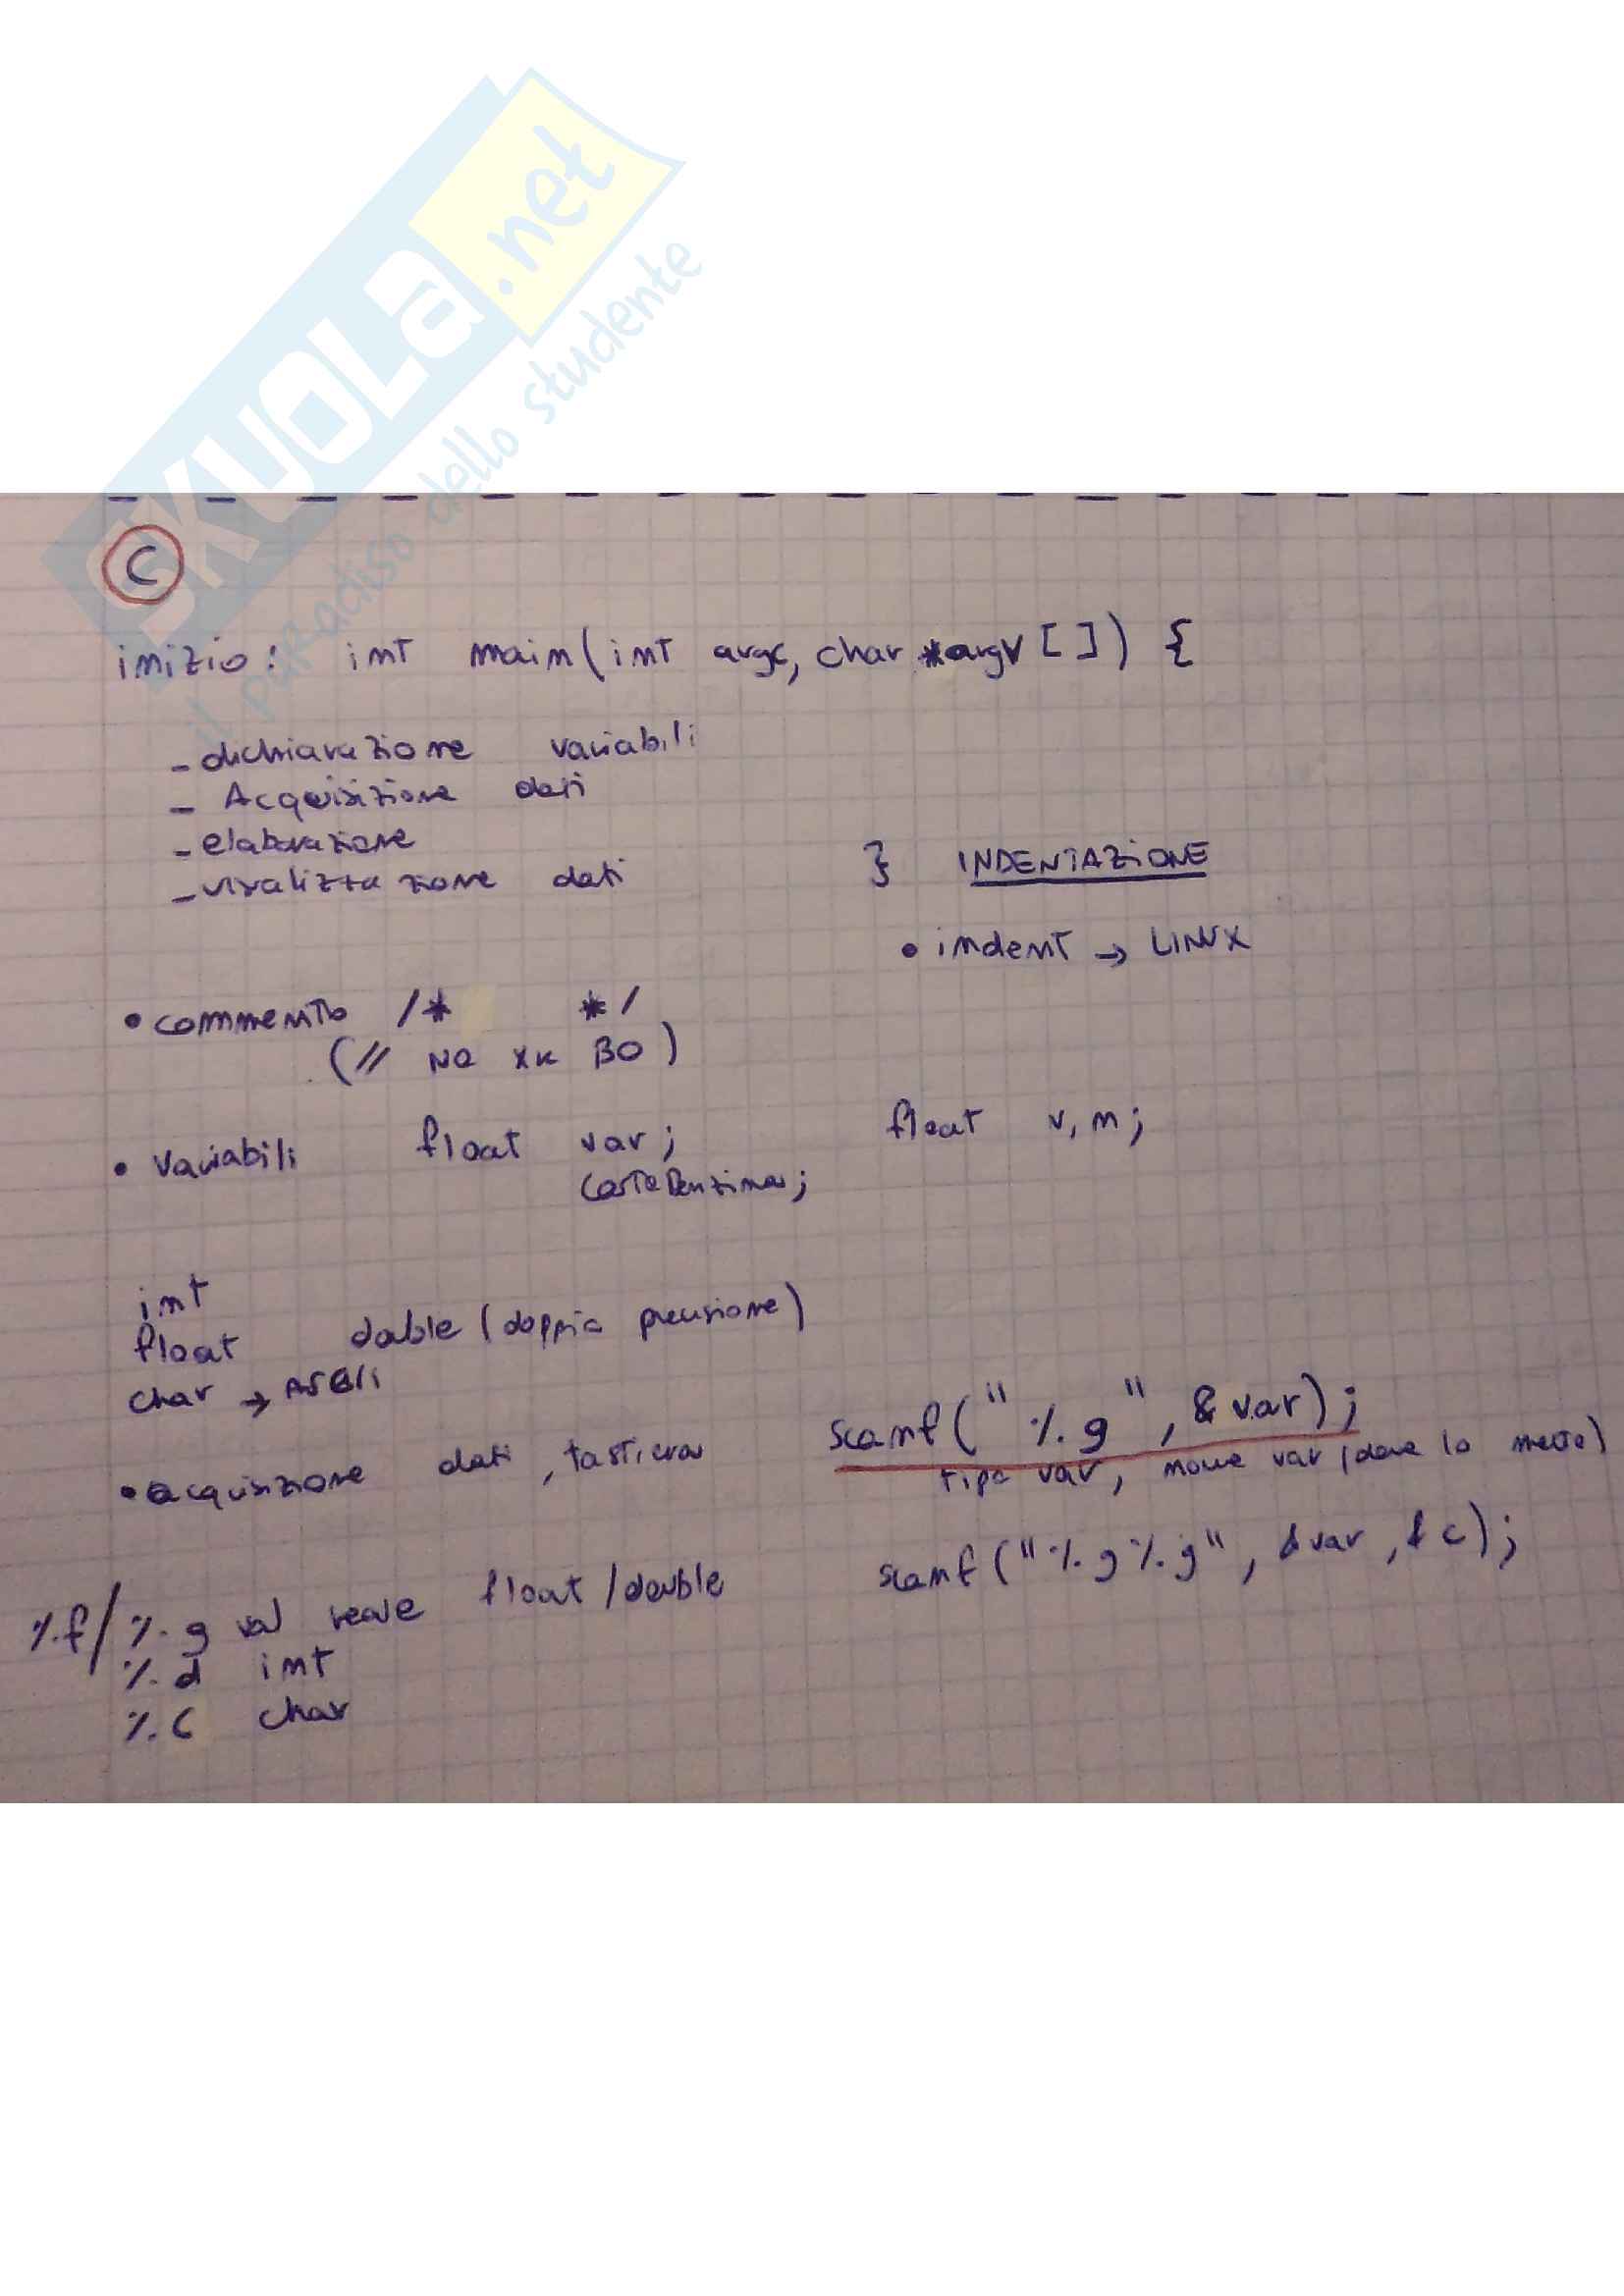 SKUOLa.net
il paradiso dello studente
C
inizio: int main(int argc, char *argv[]) {
- dichiarazione variabili
- Acquisizione dati
- elaborazione
- visalizzazione dati
} INDENTAZIONE
• indent → LINUX
• commento /* */
(// NO XK BO)
• variabili float var; float v, m;
costoBenzina;
int
float double (doppia precisione)
char → ASCII
• acquisizione dati, tastiera scanf("%g", &var);
tipo var, nome var (dove lo metto)
%f/%g val reale float/double scanf("%g%g", &var, &c);
%d int
%c char